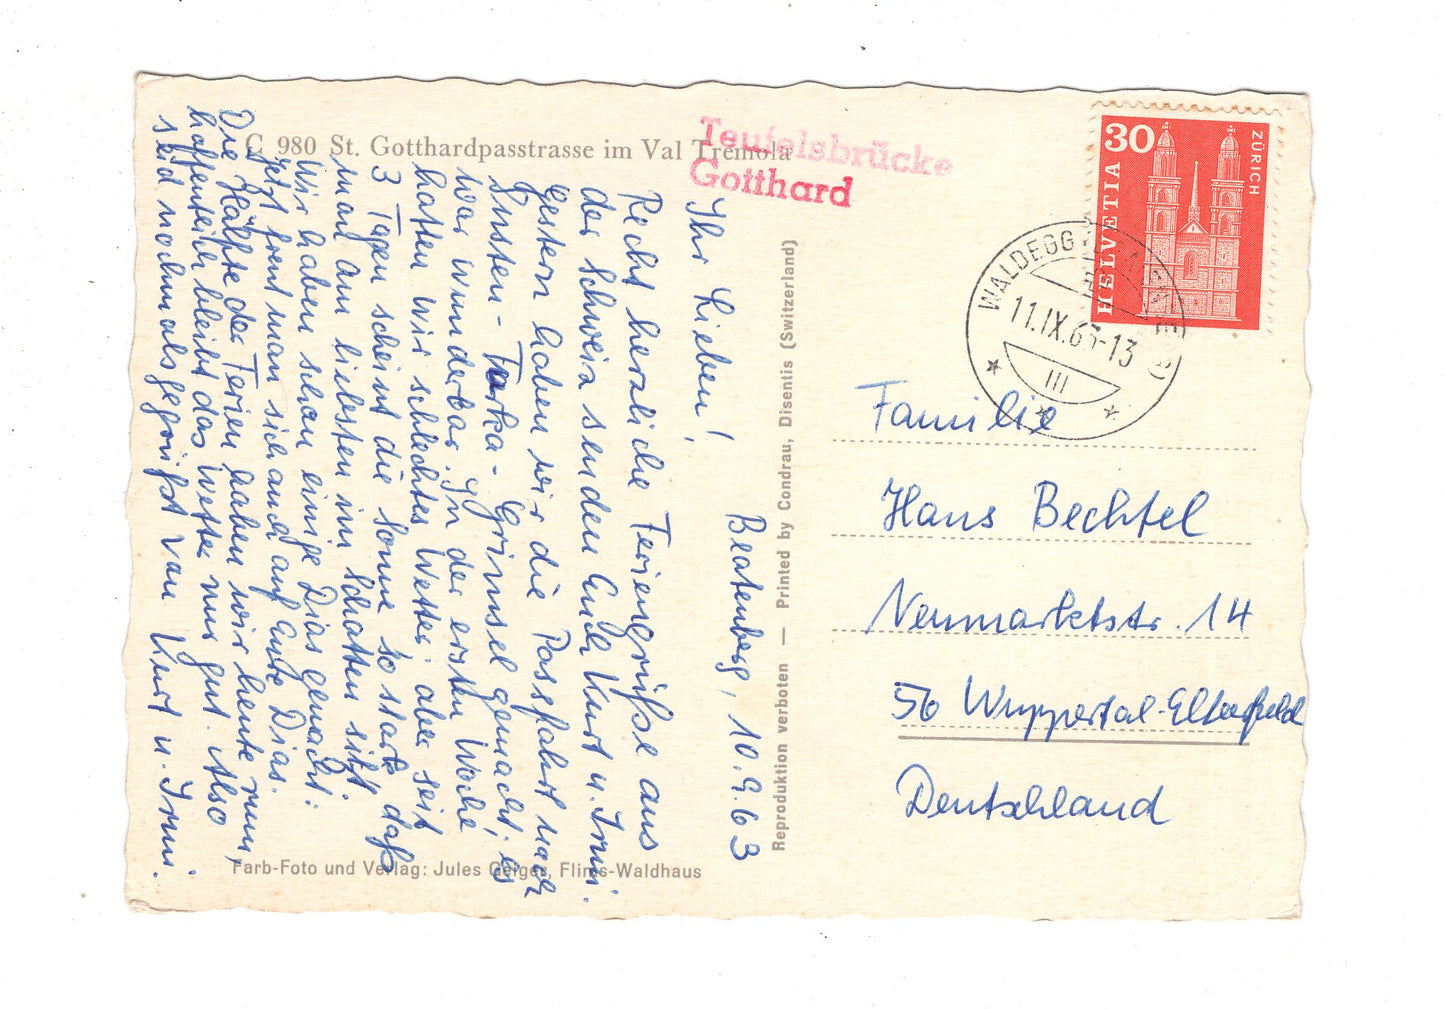 C 980 St. Gotthardpasstrasse im Val Tremola
Teufelsbrücke
Gotthard
30
ZÜRICH
HELVETIA
WALDEGG
11.IX.63-13
III
Beatenberg, 10.9.63
Ihr Lieben!
Recht herzliche Feriengrüße aus
der Schweiz senden Euch Kurt u. Irmi.
Gestern haben wir die Passfahrt nach
Susten-Furka-Grimsel gemacht, es
war wunderbar. In der ersten Woche
hatten wir schlechtes Wetter, aber seit
3 Tagen scheint die Sonne so stark daß
man am liebsten im Schatten sitzt.
Wir haben schon einige Dias gemacht.
Jetzt freut man sich auch auf gute Dias.
Die Hälfte der Ferien haben wir heute rum
hoffentlich bleibt das Wetter nur gut. Also
seid nochmals gegrüßt von Kurt u. Irmi.
Farb-Foto und Verlag: Jules Geiger, Flims-Waldhaus
Reproduktion verboten — Printed by Condrau, Disentis (Switzerland)
Familie
Hans Bechtel
Neumarktstr. 14
56 Wuppertal-Elberfeld
Deutschland